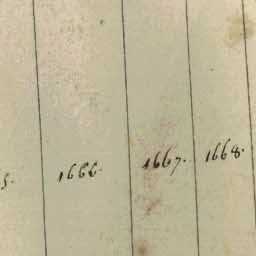 5. 1666. 1667. 1668.